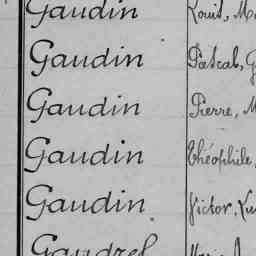 Gaudin Louis, M
Gaudin Pascal, G
Gaudin Pierre, M
Gaudin Théophile,
Gaudin Victor, Lu
Gaudzel